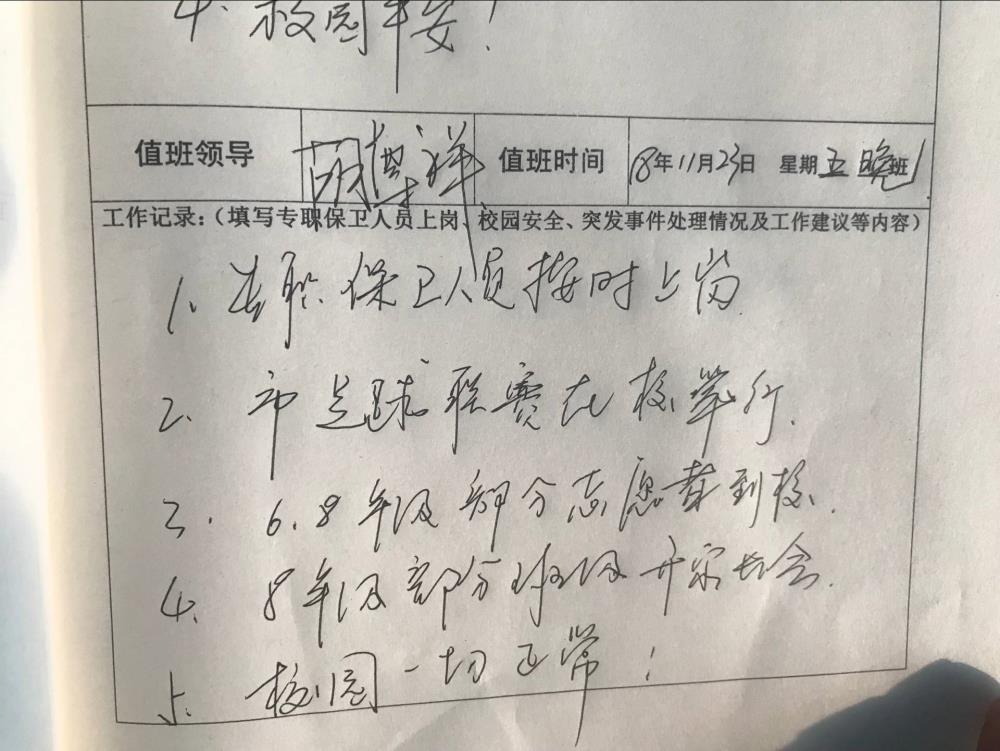 4. 校园平安!
值班领导 祥 值班时间 18年11月23日 星期五晚班
工作记录:(填写专职保卫人员上岗、校园安全、突发事件处理情况及工作建议等内容)
1. 专职保卫人员按时上岗
2. 市足球联赛在校举行.
3. 6.8年级部分志愿者到校.
4. 8年级部分班级开家长会.
5. 校园一切正常!